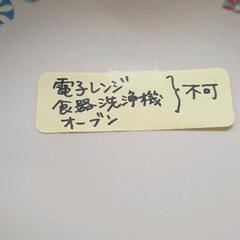 電子レンジ
食器洗浄機
オーブン
} 不可